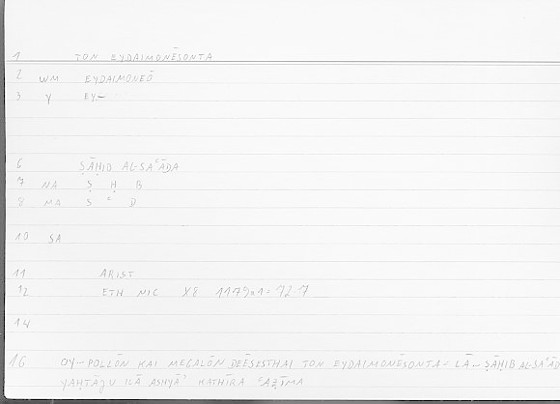 1 TON EYDAIMONĒSONTA
2 WM EYDAIMONEŌ
3 Y EY-
6 ṢĀḤIB AL-SAʿĀDA
7 NA Ṣ Ḥ B
8 MA S ʿ D
10 SA
11 ARIST
12 ETH NIC X8 1179a1= 12-17
14
16 OY-POLLŌN KAI MEGALŌN DEĒSESTHAI TON EYDAIMONĒSONTA- LĀ- ṢĀḤIB AL-SAʿĀD
YAḤTĀJU ILĀ ASHYĀʾ KATHĪRA ʿAẒĪMA